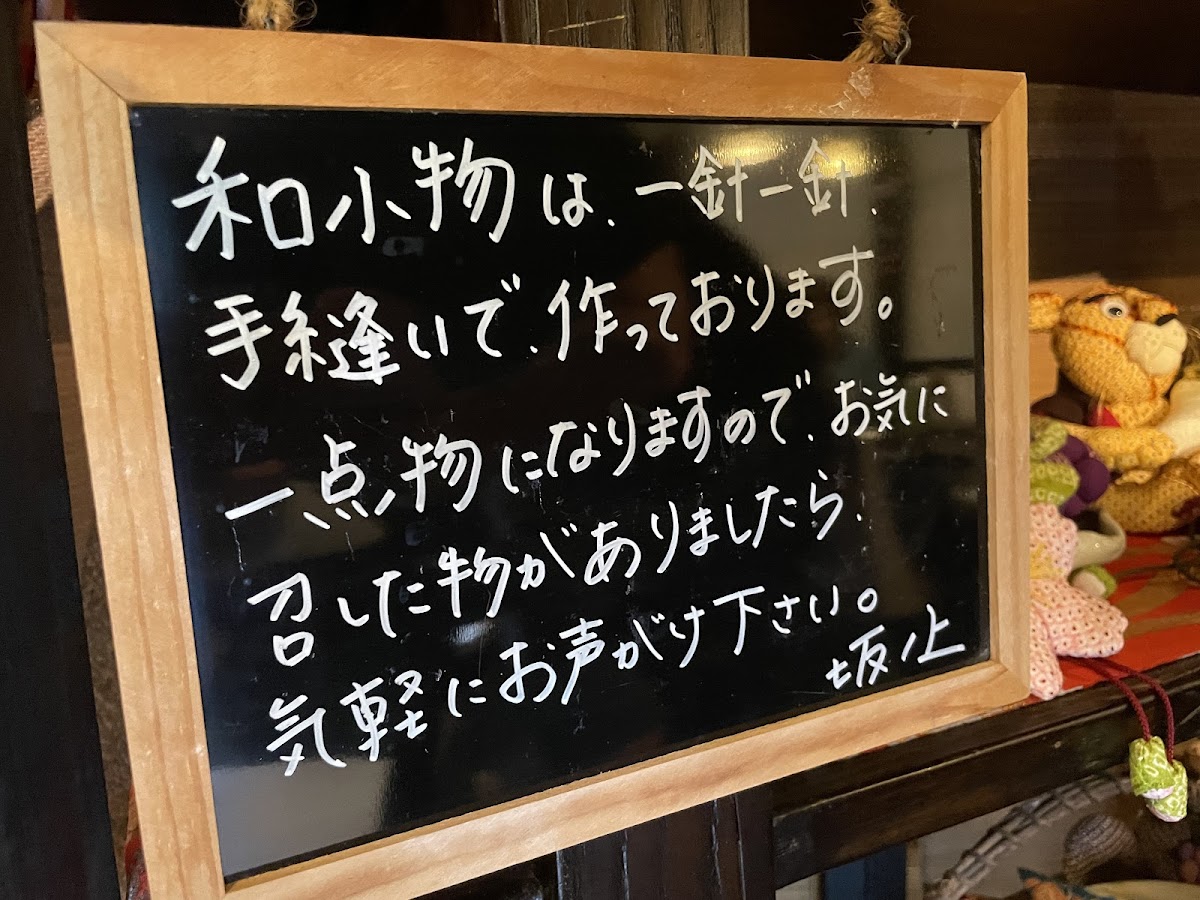 和小物は、一針一針、
手縫いで、作っております。
一点物になりますので、お気に
召した物がありましたら、
気軽にお声がけ下さい。
坂ノ上